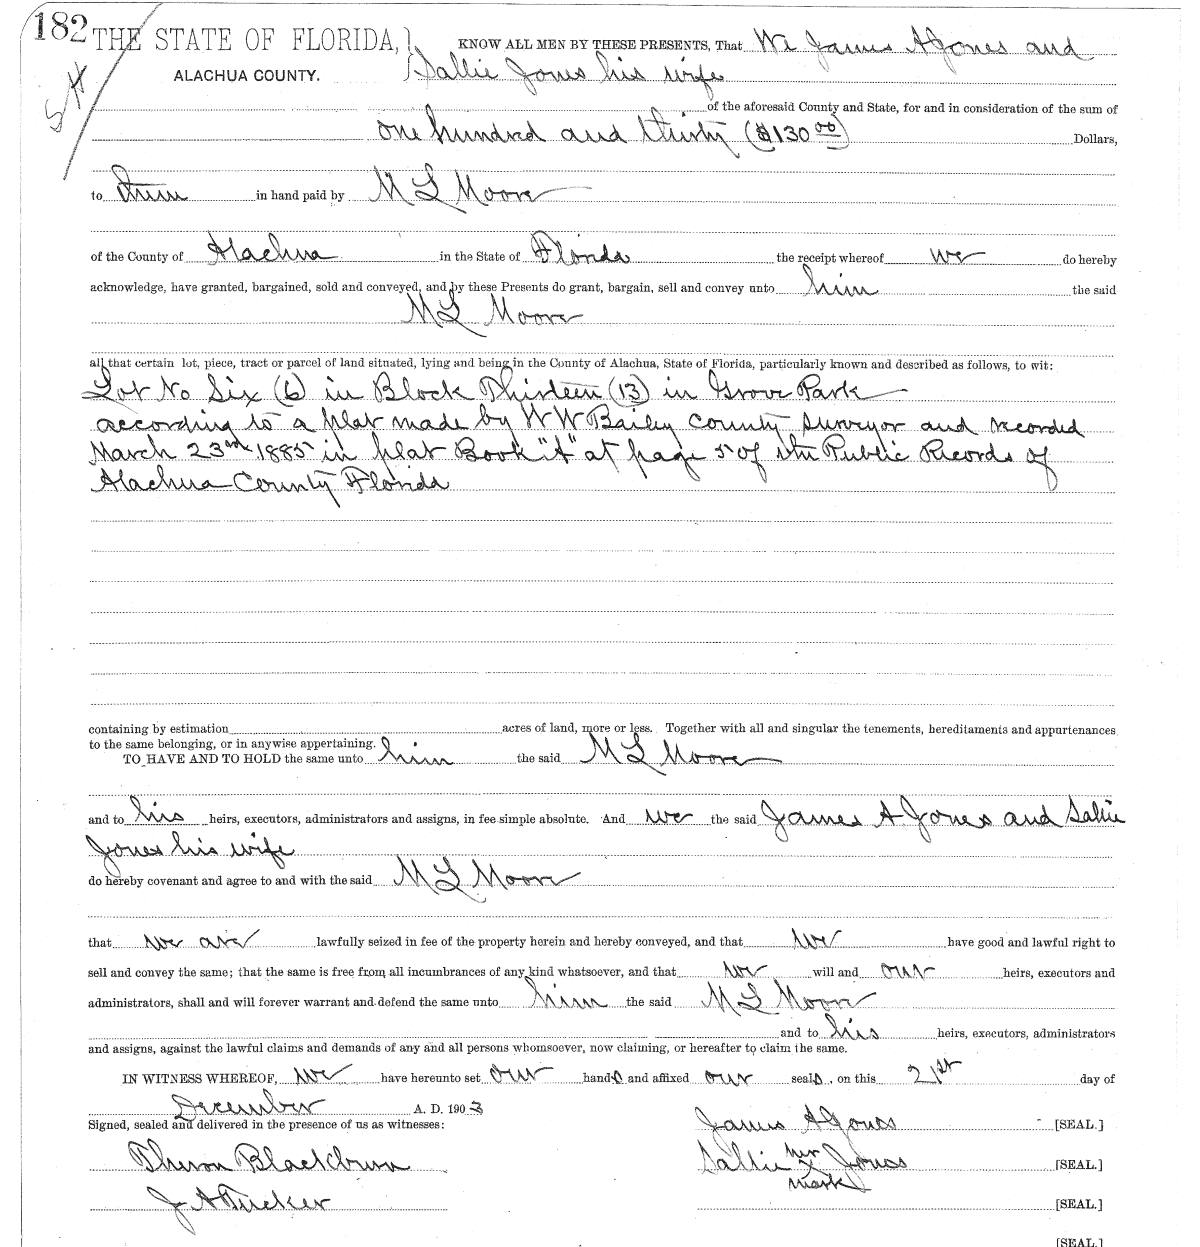 182
THE STATE OF FLORIDA,} KNOW ALL MEN BY THESE PRESENTS, That We James A Jones and
ALACHUA COUNTY. Sallie Jones his wife
of the aforesaid County and State, for and in consideration of the sum of
one hundred and thirty ($130 00) Dollars,
to them in hand paid by M L Moore
of the County of Alachua in the State of Florida the receipt whereof we do hereby
acknowledge, have granted, bargained, sold and conveyed, and by these Presents do grant, bargain, sell and convey unto him the said
M L Moore
all that certain lot, piece, tract or parcel of land situated, lying and being in the County of Alachua, State of Florida, particularly known and described as follows, to wit:
Lot No Six (6) in Block Thirteen (13) in Grove Park
according to a plat made by W W Bailey County Surveyor and recorded
March 23rd 1885 in plat Book "A" at page 5 of the Public Records of
Alachua County Florida
containing by estimation acres of land, more or less. Together with all and singular the tenements, hereditaments and appurtenances
to the same belonging, or in anywise appertaining.
TO HAVE AND TO HOLD the same unto him the said M L Moore
and to his heirs, executors, administrators and assigns, in fee simple absolute. And we the said James A Jones and Sallie
Jones his wife
do hereby covenant and agree to and with the said M L Moore
that we are lawfully seized in fee of the property herein and hereby conveyed, and that we have good and lawful right to
sell and convey the same; that the same is free from all incumbrances of any kind whatsoever, and that we will and our heirs, executors and
administrators, shall and will forever warrant and defend the same unto him the said M L Moore
and to his heirs, executors, administrators
and assigns, against the lawful claims and demands of any and all persons whomsoever, now claiming, or hereafter to claim the same.
IN WITNESS WHEREOF, we have hereunto set our hands and affixed our seals, on this 21st day of
December A. D. 1903
Signed, sealed and delivered in the presence of us as witnesses: James A Jones [SEAL.]
Theron Blackburn Sallie her x mark Jones [SEAL.]
J A Tucker [SEAL.]
[SEAL.]